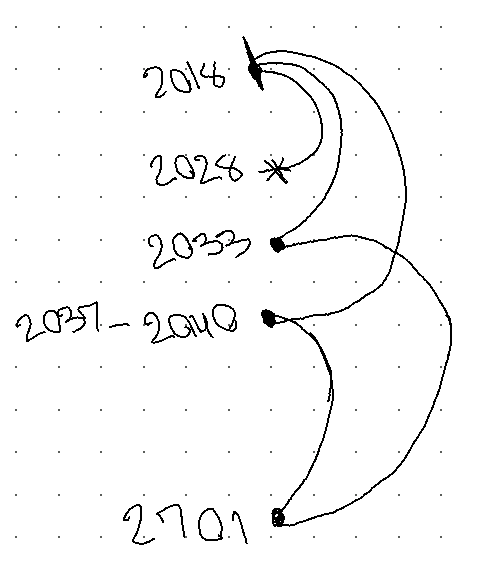 2018
2028
2033
2037-2040
2701